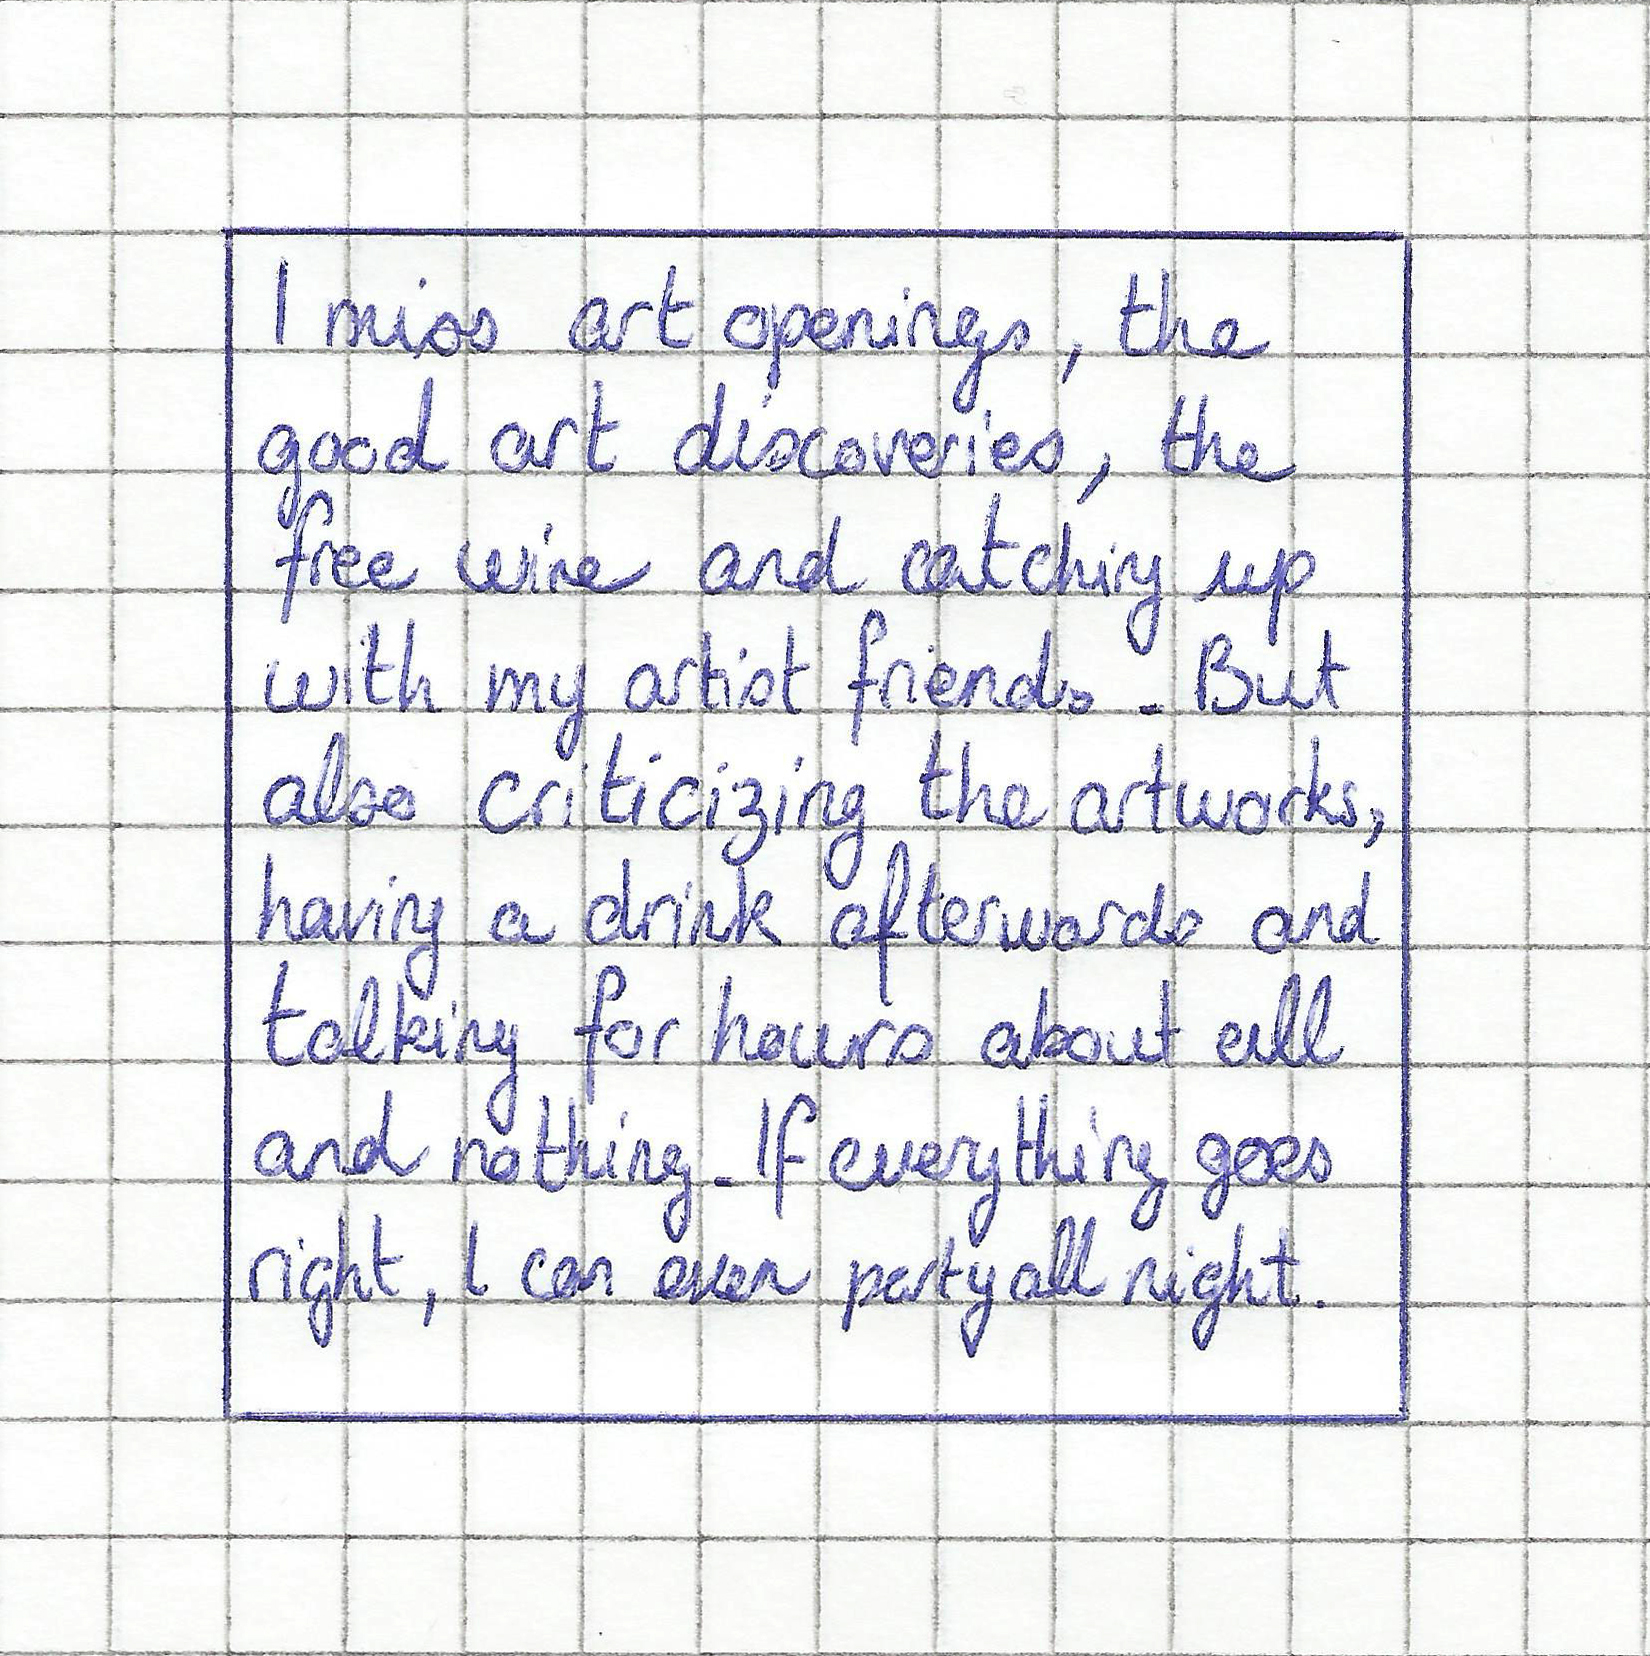 I miss art openings, the
good art discoveries, the
free wine and catching up
with my artist friends. But
also criticizing the artworks,
having a drink afterwards and
talking for hours about all
and nothing. If everything goes
right, I can even party all night.